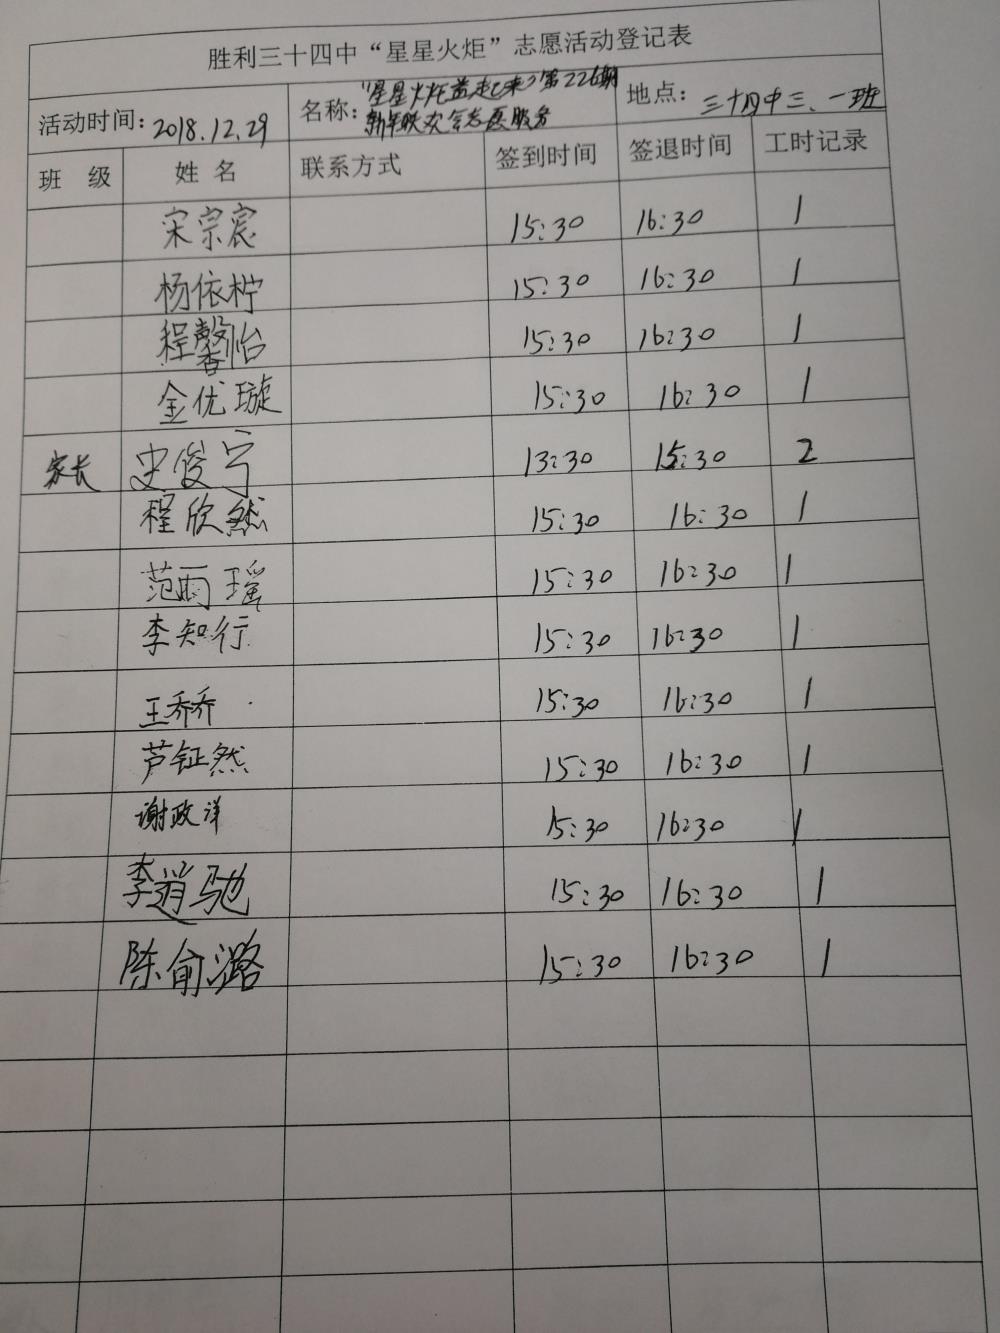 胜利三十四中“星星火炬”志愿活动登记表
活动时间：2018.12.29 名称：“星星火炬益起来”第226期 新年联欢会志愿服务 地点：三十四中三、一班
班 级 姓 名 联系方式 签到时间 签退时间 工时记录
宋宗宸 15:30 16:30 1
杨依柠 15:30 16:30 1
程馨怡 15:30 16:30 1
金优璇 15:30 16:30 1
家长 史俊宁 13:30 15:30 2
程欣然 15:30 16:30 1
范雨瑶 15:30 16:30 1
李知行 15:30 16:30 1
王乔乔 15:30 16:30 1
芦钲然 15:30 16:30 1
谢政洋 15:30 16:30 1
李逍驰 15:30 16:30 1
陈俞潞 15:30 16:30 1